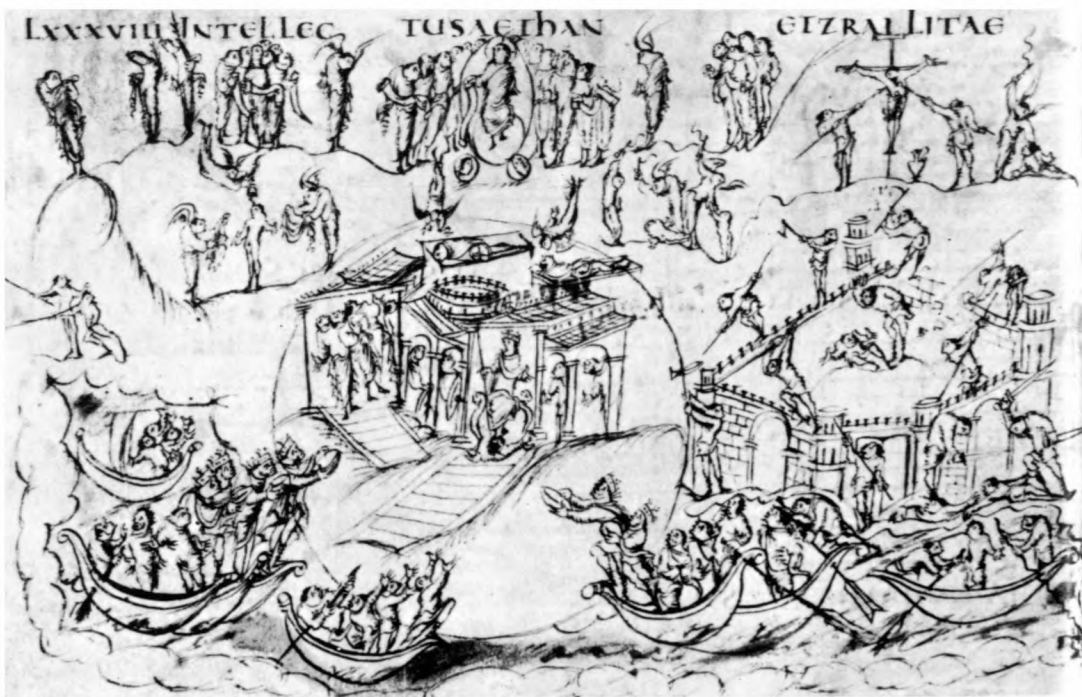 LXXXVIII INTELLEC TUSAETHAN EIZRALLITAE